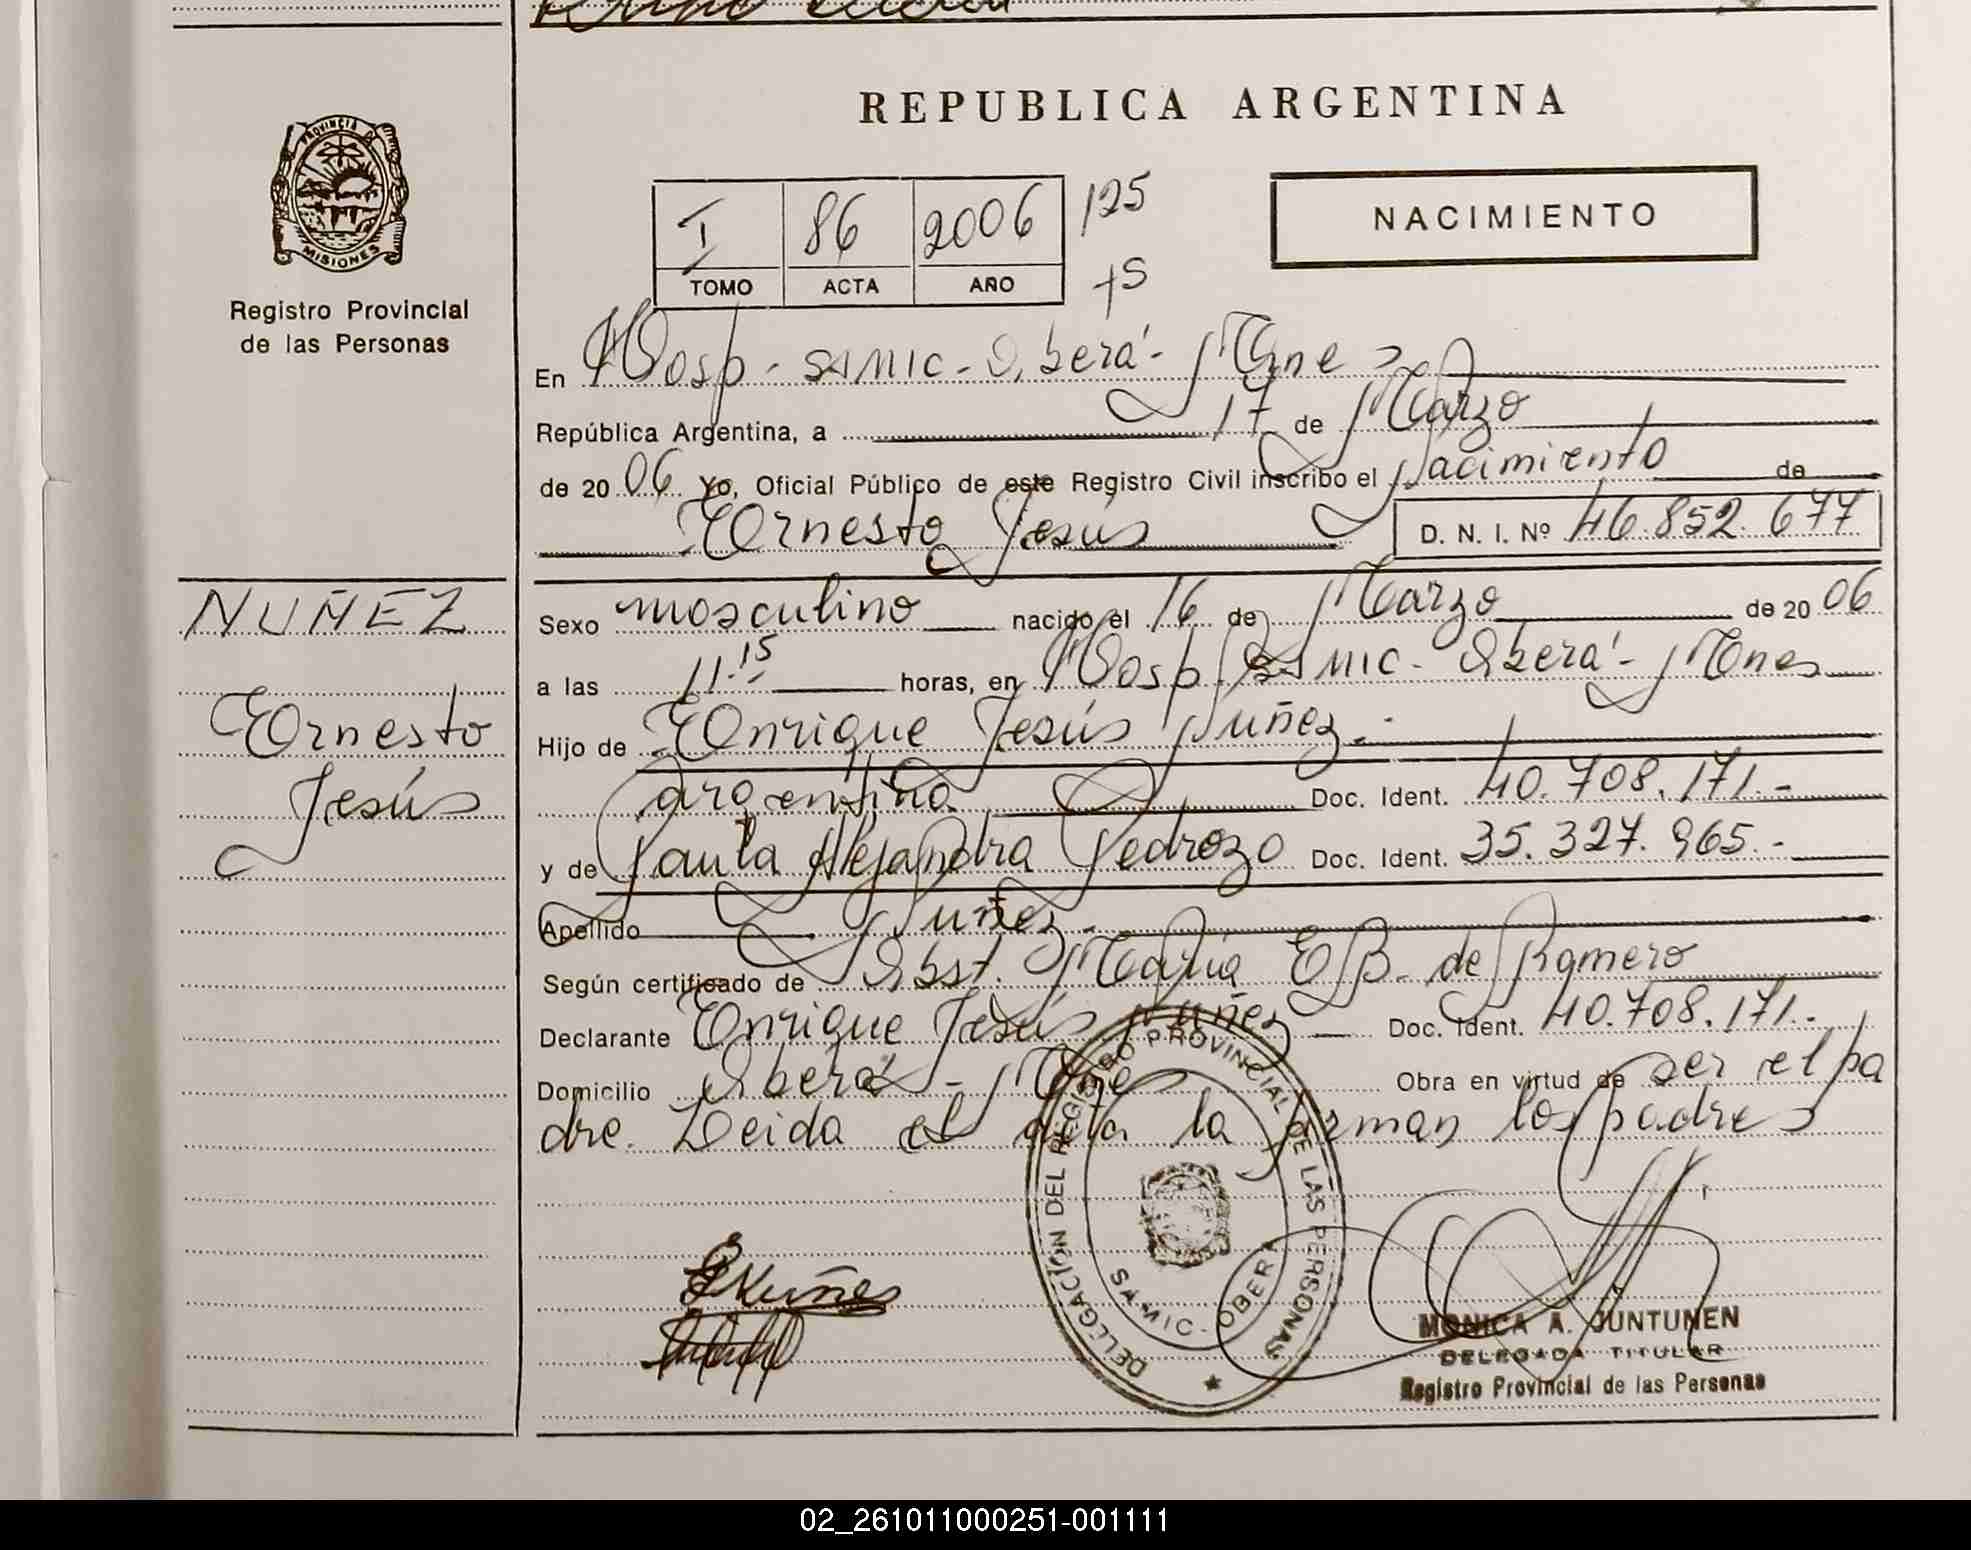 REPUBLICA ARGENTINA
PROVINCIA D
MISIONES
Registro Provincial
de las Personas
I 86 2006 125
TOMO ACTA AÑO +5
NACIMIENTO
En Hosp - SAMIC - Oberá - Mnes
República Argentina, a 17 de Marzo
de 2006 Yo, Oficial Público de este Registro Civil inscribo el Nacimiento de
Ernesto Jesús D. N. I. Nº 46.852.677
NUÑEZ
Ernesto
Jesús
Sexo masculino nacido el 16 de Marzo de 2006
a las 11.15 horas, en Hosp SAMIC - Oberá - Mnes
Hijo de Enrique Jesús Nuñez.-
argentino Doc. Ident. 40.708.171.-
y de Paula Alejandra Pedrozo Doc. Ident. 35.327.965.-
Apellido Nuñez.
Según certificado de Obst. María E B. de Romero
Declarante Enrique Jesús Nuñez Doc. Ident. 40.708.171.-
Domicilio Oberá - Mnes Obra en virtud de ser el pa
dre. Leida el acta la firman los padres
E Nuñes
DELEGACIÓN DEL REGISTRO PROVINCIAL DE LAS PERSONAS
SAMIC - OBERA
MONICA A. JUNTUNEN
DELEGADA TITULAR
Registro Provincial de las Personas
02_261011000251-001111